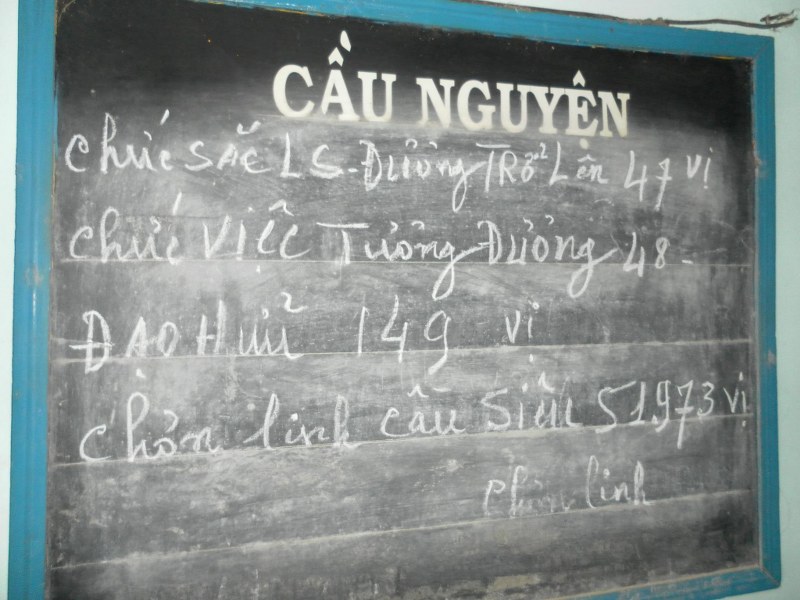 CẦU NGUYỆN
chức sắc LS-Đưởng Trở Lên 47 vị
chức việc Tưởng Dưởng 48-
Đạo Hưũ 149 vị
chơn linh cầu siêu 51,973 vị
chơn linh